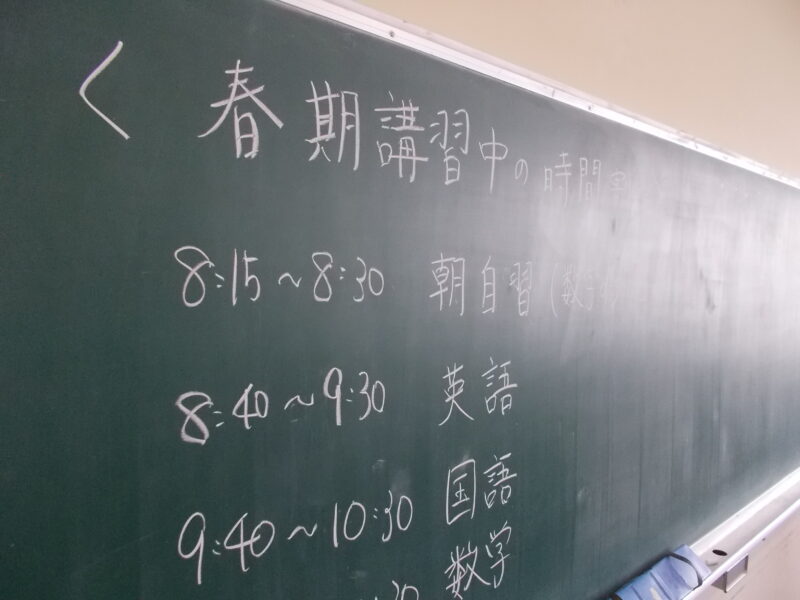 < 春期講習中の時間
8:15～8:30 朝自習(数学
8:40～9:30 英語
9:40～10:30 国語
30 数学